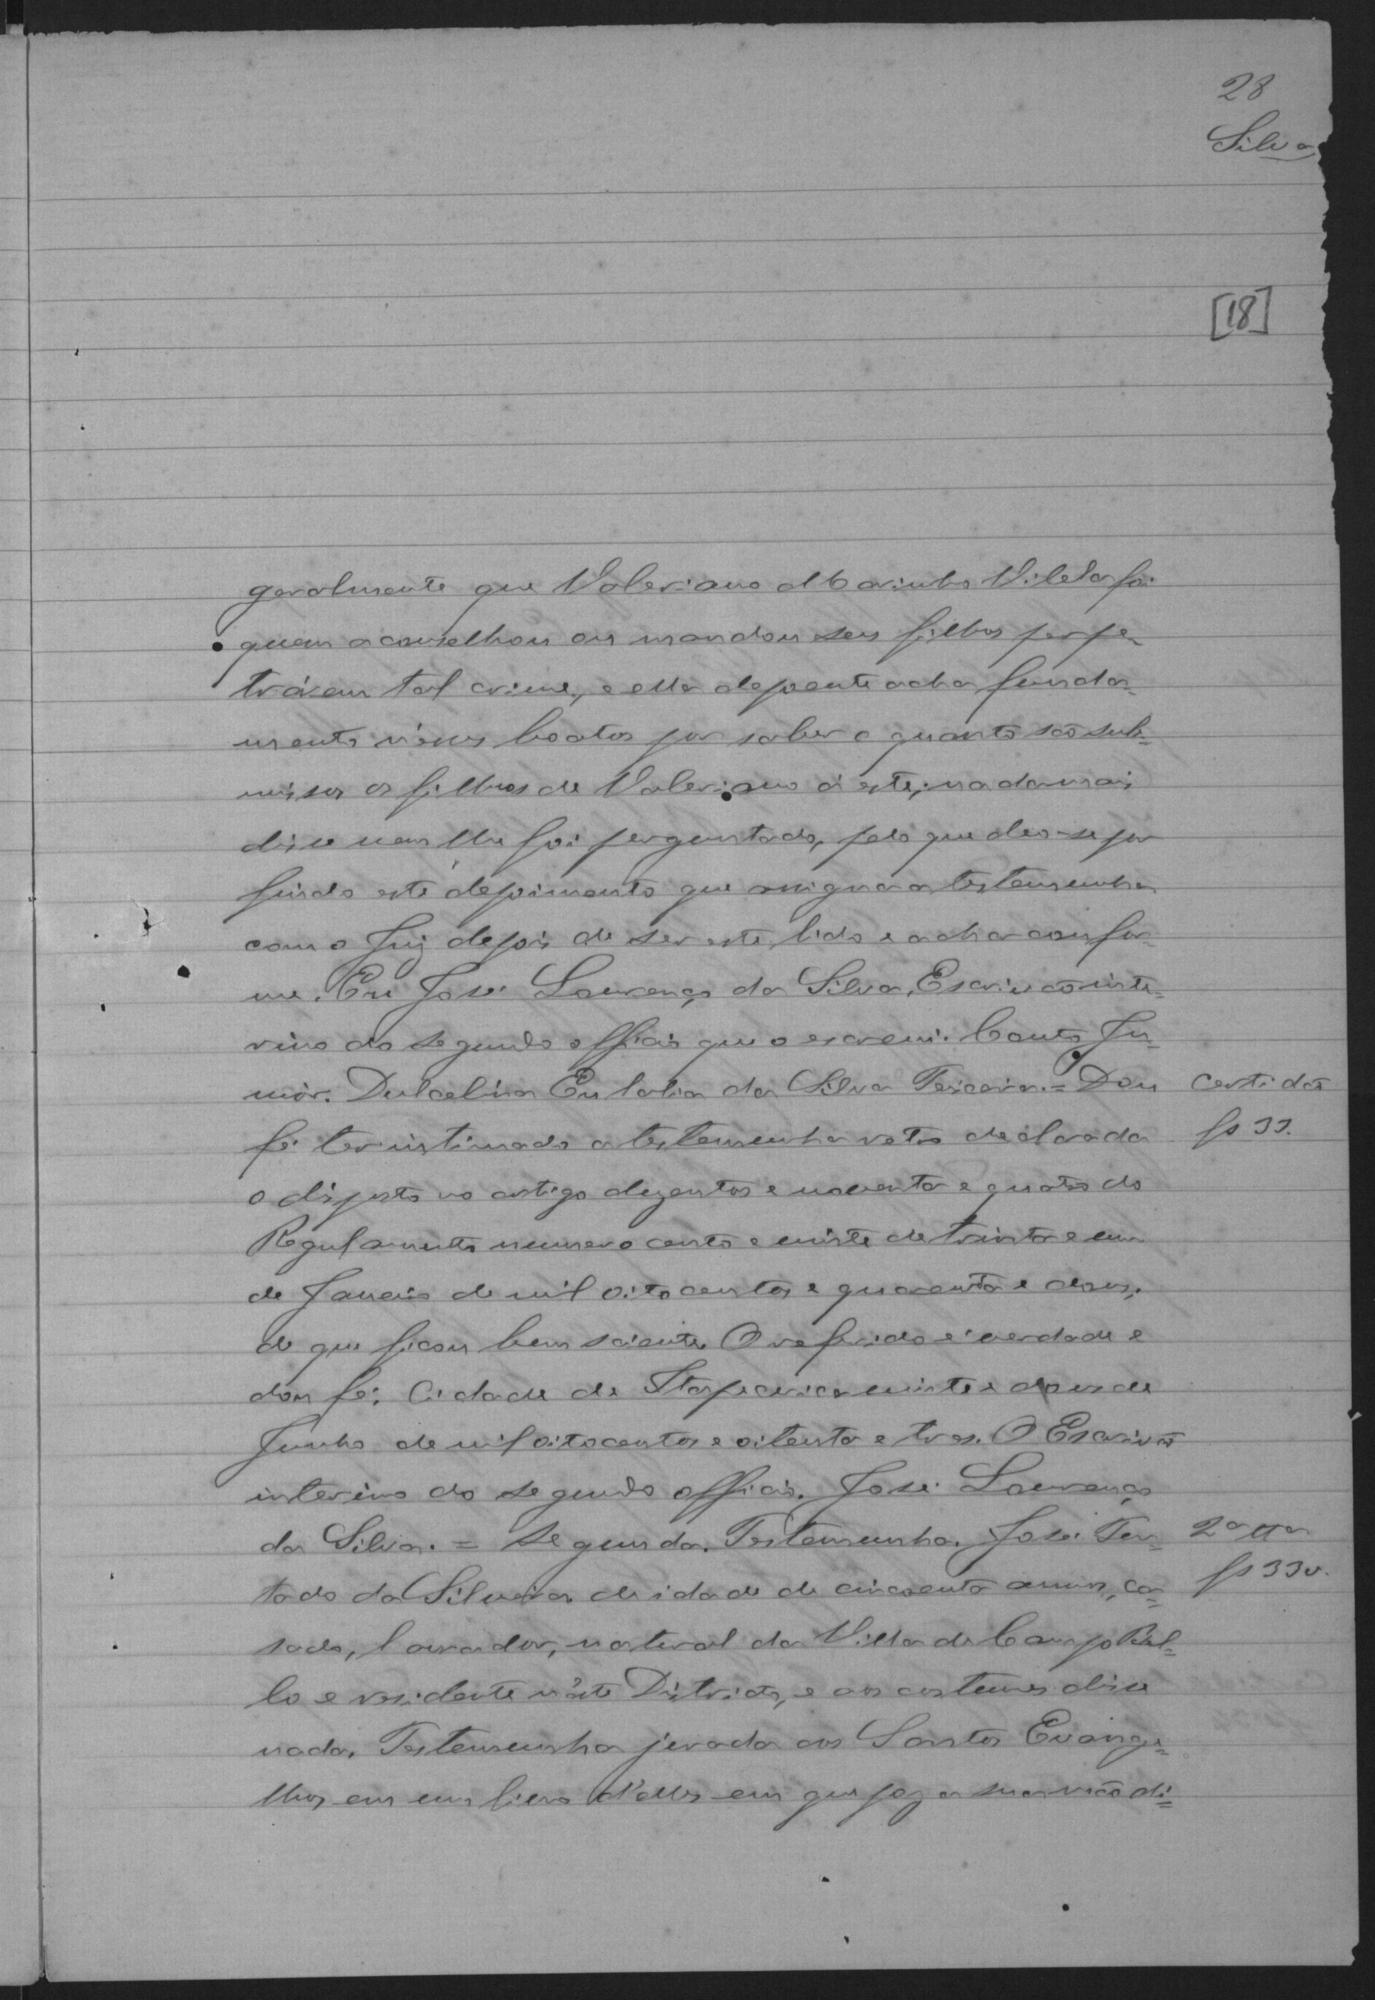 28
Silva
[18]
geralmente que Valeriano Marinho Vilela foi
quem aconselhou ou mandou seus filhos perpe-
trárem tal crime, e ella depoente acha funda-
mento n'esses boatos por saber o quanto são sub-
missos os filhos de Valeriano á este; nada mais
disse nem lhe foi perguntado, pelo que deo-se por
findo este depoimento que assigna a testemunha
com o Juiz depois de ser este lido e achar confor-
me. Eu José Lourenço da Silva, Escrivão inte-
rino do segundo officio que o escrevi. Couto Ju-
nior. Dulcelina Eulalia da Silva Teixeira. = Dou
certidão
fé ter intimado a testemunha retro declarada
fs 33.
o disposto no artigo duzentos e noventa e quatro do
Regulamento numero cento e vinte de trinta e um
de Janeiro de mil oito centos e quarenta e dous,
de que ficou bem sciente. O referido é verdade e
dou fé. Cidade de Itapecerica vinte e dous de
Junho de mil oitocentos e oitenta e tres. O Escrivão
interino do segundo officio. José Lourenço
da Silva. = Segunda. Testemunha. José Fur-
2a tta
tado da Silveira de idade de cincoenta annos, ca-
fs 33v.
sado, lavrador, natural da Villa de Campo Bel-
lo e residente n'este Districto, e aos costumes disse
nada. Testemunha jurada aos Santos Evange-
lhos em um livro d'elles em que poz a sua mão di-